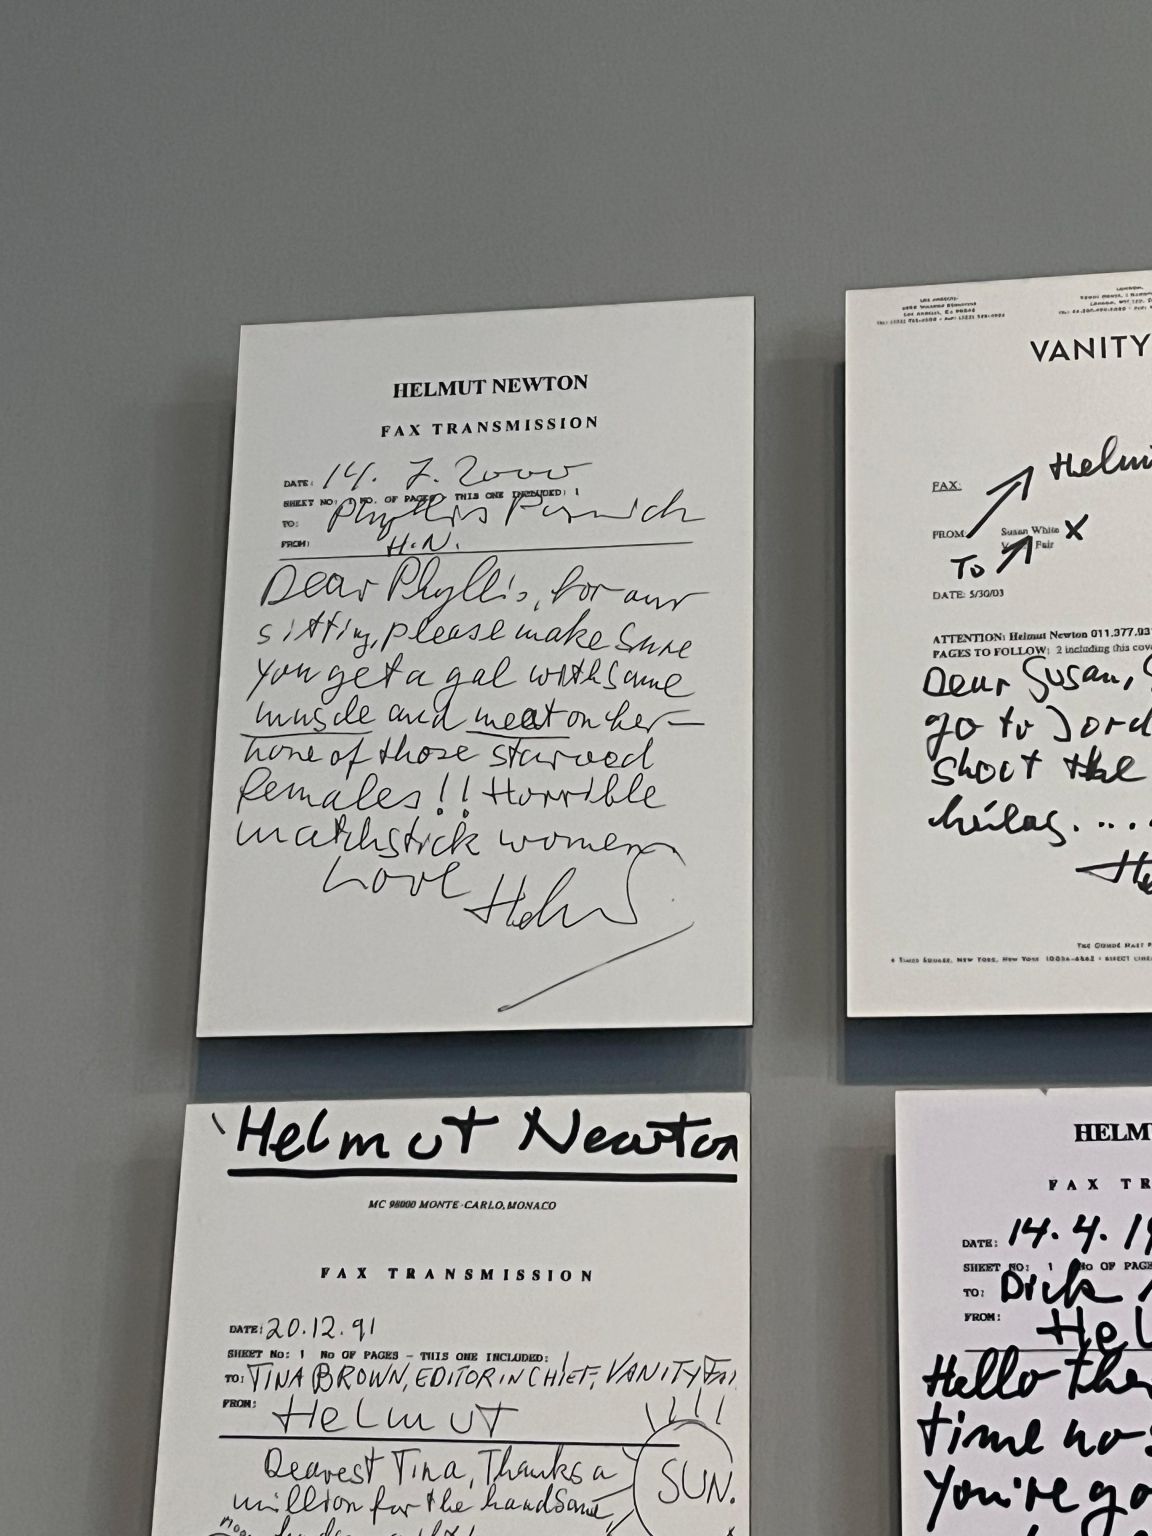 HELMUT NEWTON
FAX TRANSMISSION
DATE: 14. 7. 2000
SHEET NO: 1 NO. OF PAGES - THIS ONE INCLUDED: 1
TO: Phyllis
FROM: H.N.
Dear Phyllis, for our
sitting, please make sure
you get a gal with some
muscle and meat on her —
none of those starved
females!! Horrible
matchstick women
Love Helmut
LOS ANGELES:
LOS ANGELES, CA
VANITY
FAX:
FROM: Susan White X
Fair
To
DATE: 5/30/03
ATTENTION: Helmut Newton 011.377.93
PAGES TO FOLLOW: 2 including this cov
Dear Susan,
go to Jord
shoot the
hélas....
4 TIMES SQUARE, NEW YORK, NEW YORK
Helmut Newton
MC 98000 MONTE-CARLO, MONACO
FAX TRANSMISSION
DATE: 20.12.91
SHEET No: 1 No OF PAGES - THIS ONE INCLUDED: 1
TO: TINA BROWN, EDITOR IN CHIEF, VANITY FAI
FROM: Helmut
Dearest Tina, Thanks a
million for the handsome
SUN.
HELM
FAX TR
DATE: 14.4.19
SHEET NO: 1 No OF PAGE
TO: Dick
FROM: Hel
Hello the
time no s
You're go